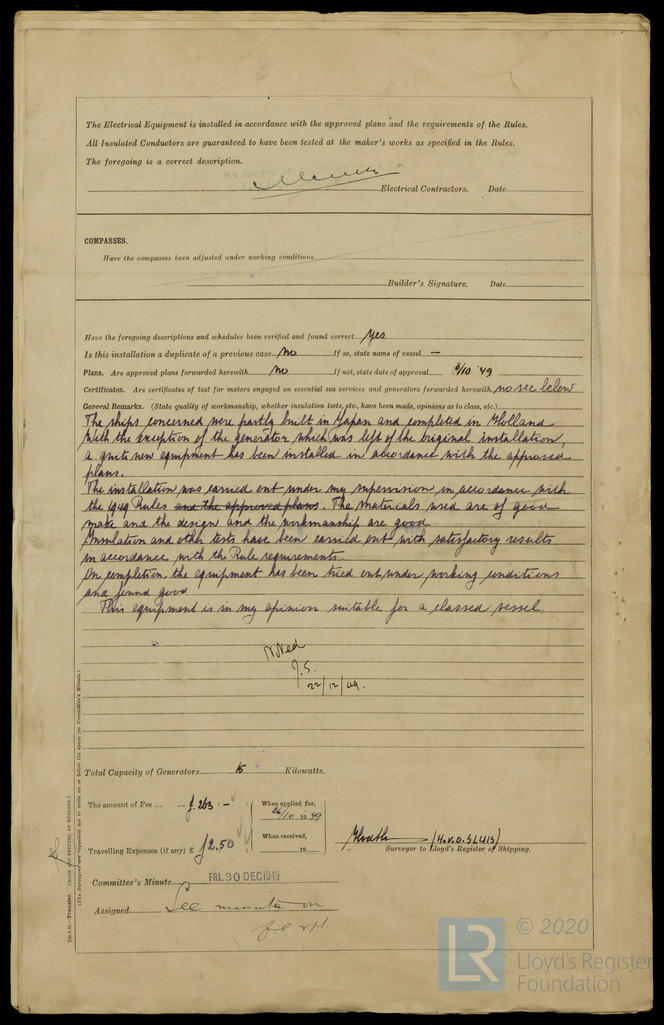 The Electrical Equipment is installed in accordance with the approved plans and the requirements of the Rules.
All Insulated Conductors are guaranteed to have been tested at the maker's works as specified in the Rules.
The foregoing is a correct description.
Electrical Contractors. Date
COMPASSES.
Have the compasses been adjusted under working conditions
Builder's Signature. Date
Have the foregoing descriptions and schedules been verified and found correct yes
Is this installation a duplicate of a previous case No If so, state name of vessel —
Plans. Are approved plans forwarded herewith No If not, state date of approval /10 '49
Certificates. Are certificates of test for motors engaged on essential sea services and generators forwarded herewith no see below
General Remarks. (State quality of workmanship, whether insulation tests, etc., have been made, opinions as to class, etc.)
The ships concerned were partly built in Japan and completed in Holland
With the exception of the generator which was left of the original installation,
a quite new equipment has been installed in accordance with the approved
plans.
The installation was carried out under my supervision in accordance with
the 1949 Rules and the approved plans. The materials used are of good
make and the design and the workmanship are good
Insulation and other tests have been carried out with satisfactory results
in accordance with the Rule requirements.
On completion the equipment has been tried out under working conditions
and found good
This equipment is in my opinion suitable for a classed vessel.
Noted
J.S.
22/12/49.
Total Capacity of Generators 15 Kilowatts.
The amount of Fee ... ... f. 263 : - :
When applied for,
26/10 19 49
Travelling Expenses (if any) £ f 2.50 :
When received,
19
(H. v. d. SLUIS)
Surveyor to Lloyd's Register of Shipping.
Committee's Minute FRI. 30 DEC 1949
Assigned See minute on
2m.9.46—Transfer. (MADE AND PRINTED IN ENGLAND.)
(The Surveyors are requested not to write on or below the space for Committee's Minute.)
© 2020
LR
Lloyd's Register
Foundation